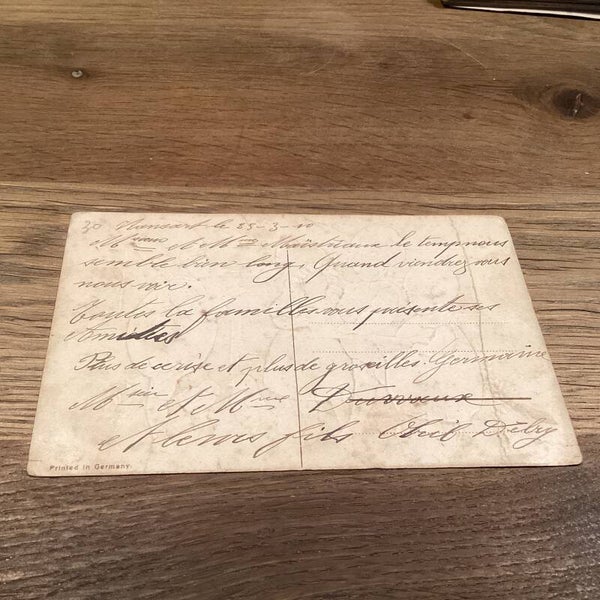 30 Ransart le 25-3-10
et Mme Maistriaux le temp nous
semble bien long. Quand viendrez vous
nous voir.
Toutes la familles vous présente ses
Amitiés
Plus de cerise et plus de groseilles. Germaine
et Mme
et leurs fils Delry
Printed in Germany.